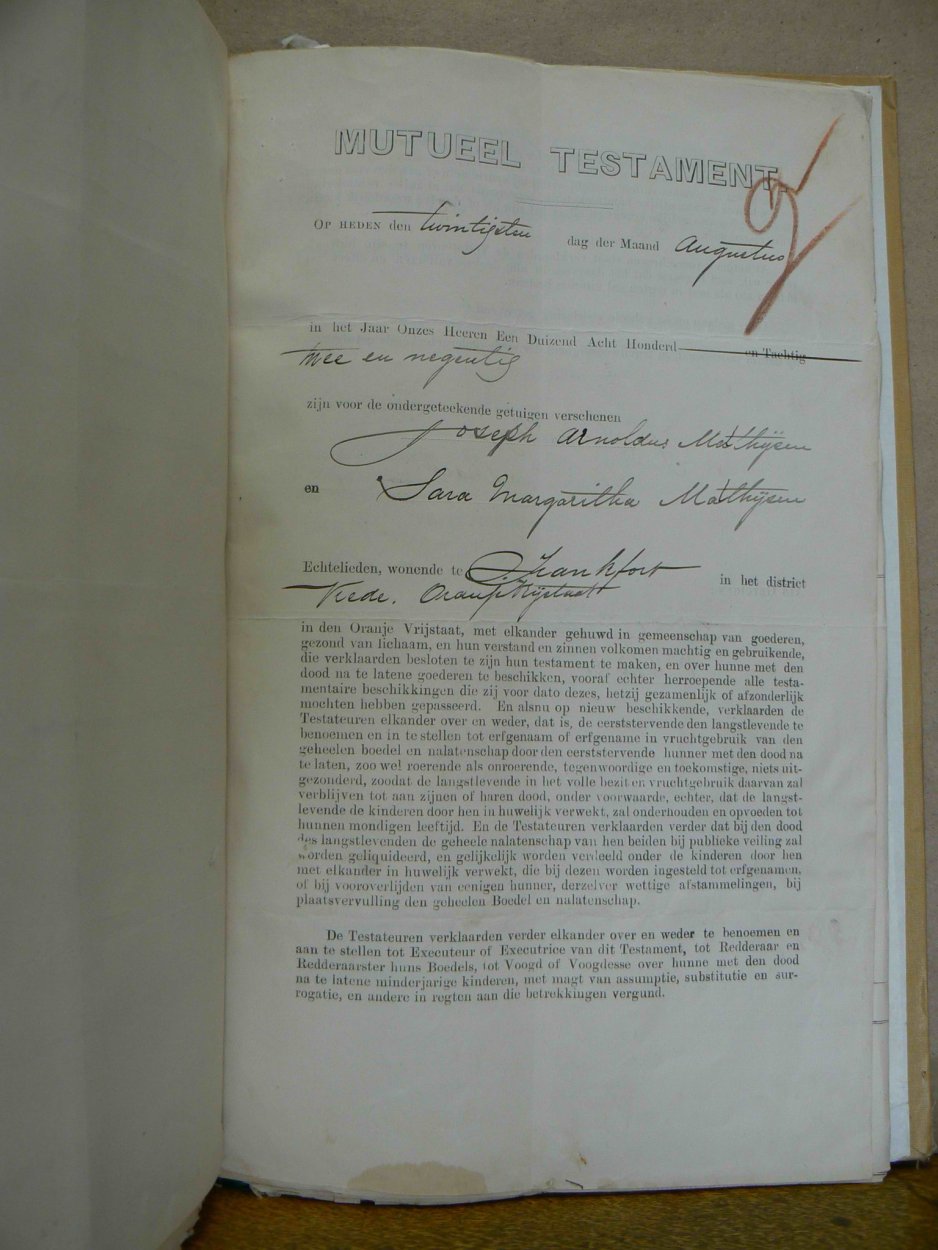 MUTUEEL TESTAMENT.
OP HEDEN den twintigsten dag der Maand Augustus
in het Jaar Onzes Heeren Een Duizend Acht Honderd en Tachtig
twee en negentig
zijn voor de ondergeteekende getuigen verschenen
Joseph Arnoldus Mathijsen
en Sara Margaritha Mathijsen
Echtelieden, wonende te Frankfort in het district
Vrede. Oranje Vrijstaat
in den Oranje Vrijstaat, met elkander gehuwd in gemeenschap van goederen,
gezond van lichaam, en hun verstand en zinnen volkomen machtig en gebruikende,
die verklaarden besloten te zijn hun testament te maken, en over hunne met den
dood na te latene goederen te beschikken, vooraf echter herroepende alle testa-
mentaire beschikkingen die zij voor dato dezes, hetzij gezamenlijk of afzonderlijk
mochten hebben gepasseerd. En alsnu op nieuw beschikkende, verklaarden de
Testateuren elkander over en weder, dat is, de eerststervende den langstlevende te
benoemen en in te stellen tot erfgenaam of erfgename in vruchtgebruik van den
geheelen boedel en nalatenschap door den eerststervende hunner met den dood na
te laten, zoo wel roerende als onroerende, tegenwoordige en toekomstige, niets uit-
gezonderd, zoodat de langstlevende in het volle bezit en vruchtgebruik daarvan zal
verblijven tot aan zijnen of haren dood, onder voorwaarde, echter, dat de langst-
levende de kinderen door hen in huwelijk verwekt, zal onderhouden en opvoeden tot
hunnen mondigen leeftijd. En de Testateuren verklaarden verder dat bij den dood
des langstlevenden de geheele nalatenschap van hen beiden bij publieke veiling zal
worden geliquideerd, en gelijkelijk worden verdeeld onder de kinderen door hen
met elkander in huwelijk verwekt, die bij dezen worden ingesteld tot erfgenamen,
of bij vooroverlijden van eenigen hunner, derzelver wettige afstammelingen, bij
plaatsvervulling den geheelen Boedel en nalatenschap.
De Testateuren verklaarden verder elkander over en weder te benoemen en
aan te stellen tot Executeur of Executrice van dit Testament, tot Redderaar en
Redderaarster huns Boedels, tot Voogd of Voogdesse over hunne met den dood
na te latene minderjarige kinderen, met magt van assumptie, substitutie en sur-
rogatie, en andere in regten aan die betrekkingen vergund.